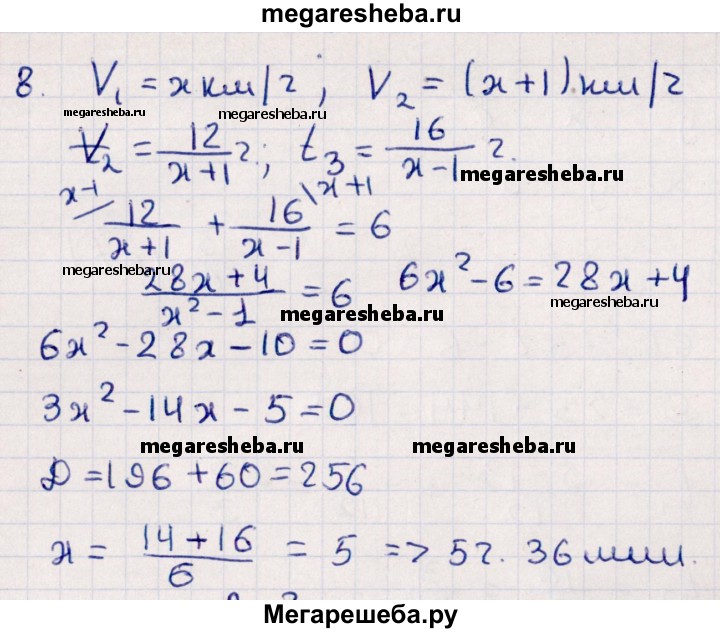 megaresheba.ru
8. V₁ = x км/ч ; V₂ = (x+1) км/ч
megaresheba.ru megaresheba.ru
t₂ = 12/(x+1) ч.; t₃ = 16/(x-1) ч.
megaresheba.ru
x-1/ 12/(x+1) + 16/(x-1) \x+1 = 6
megaresheba.ru
(28x+4)/(x²-1) = 6 6x²-6=28x+4
megaresheba.ru megaresheba.ru
6x²-28x-10=0
3x²-14x-5=0
megaresheba.ru megaresheba.ru
D=196+60=256
x = (14+16)/6 = 5 => 5ч. 36 мин.
megaresheba.ru megaresheba.ru
Мегарешеба.ру